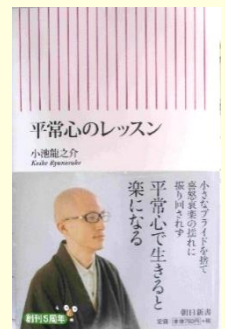 平常心のレッスン
小池龍之介
Koike Ryunosuke
小さなプライドを捨て
喜怒哀楽の揺れに
振り回されず
平常心で生きると
楽になる
創刊5周年
朝日新書
定価